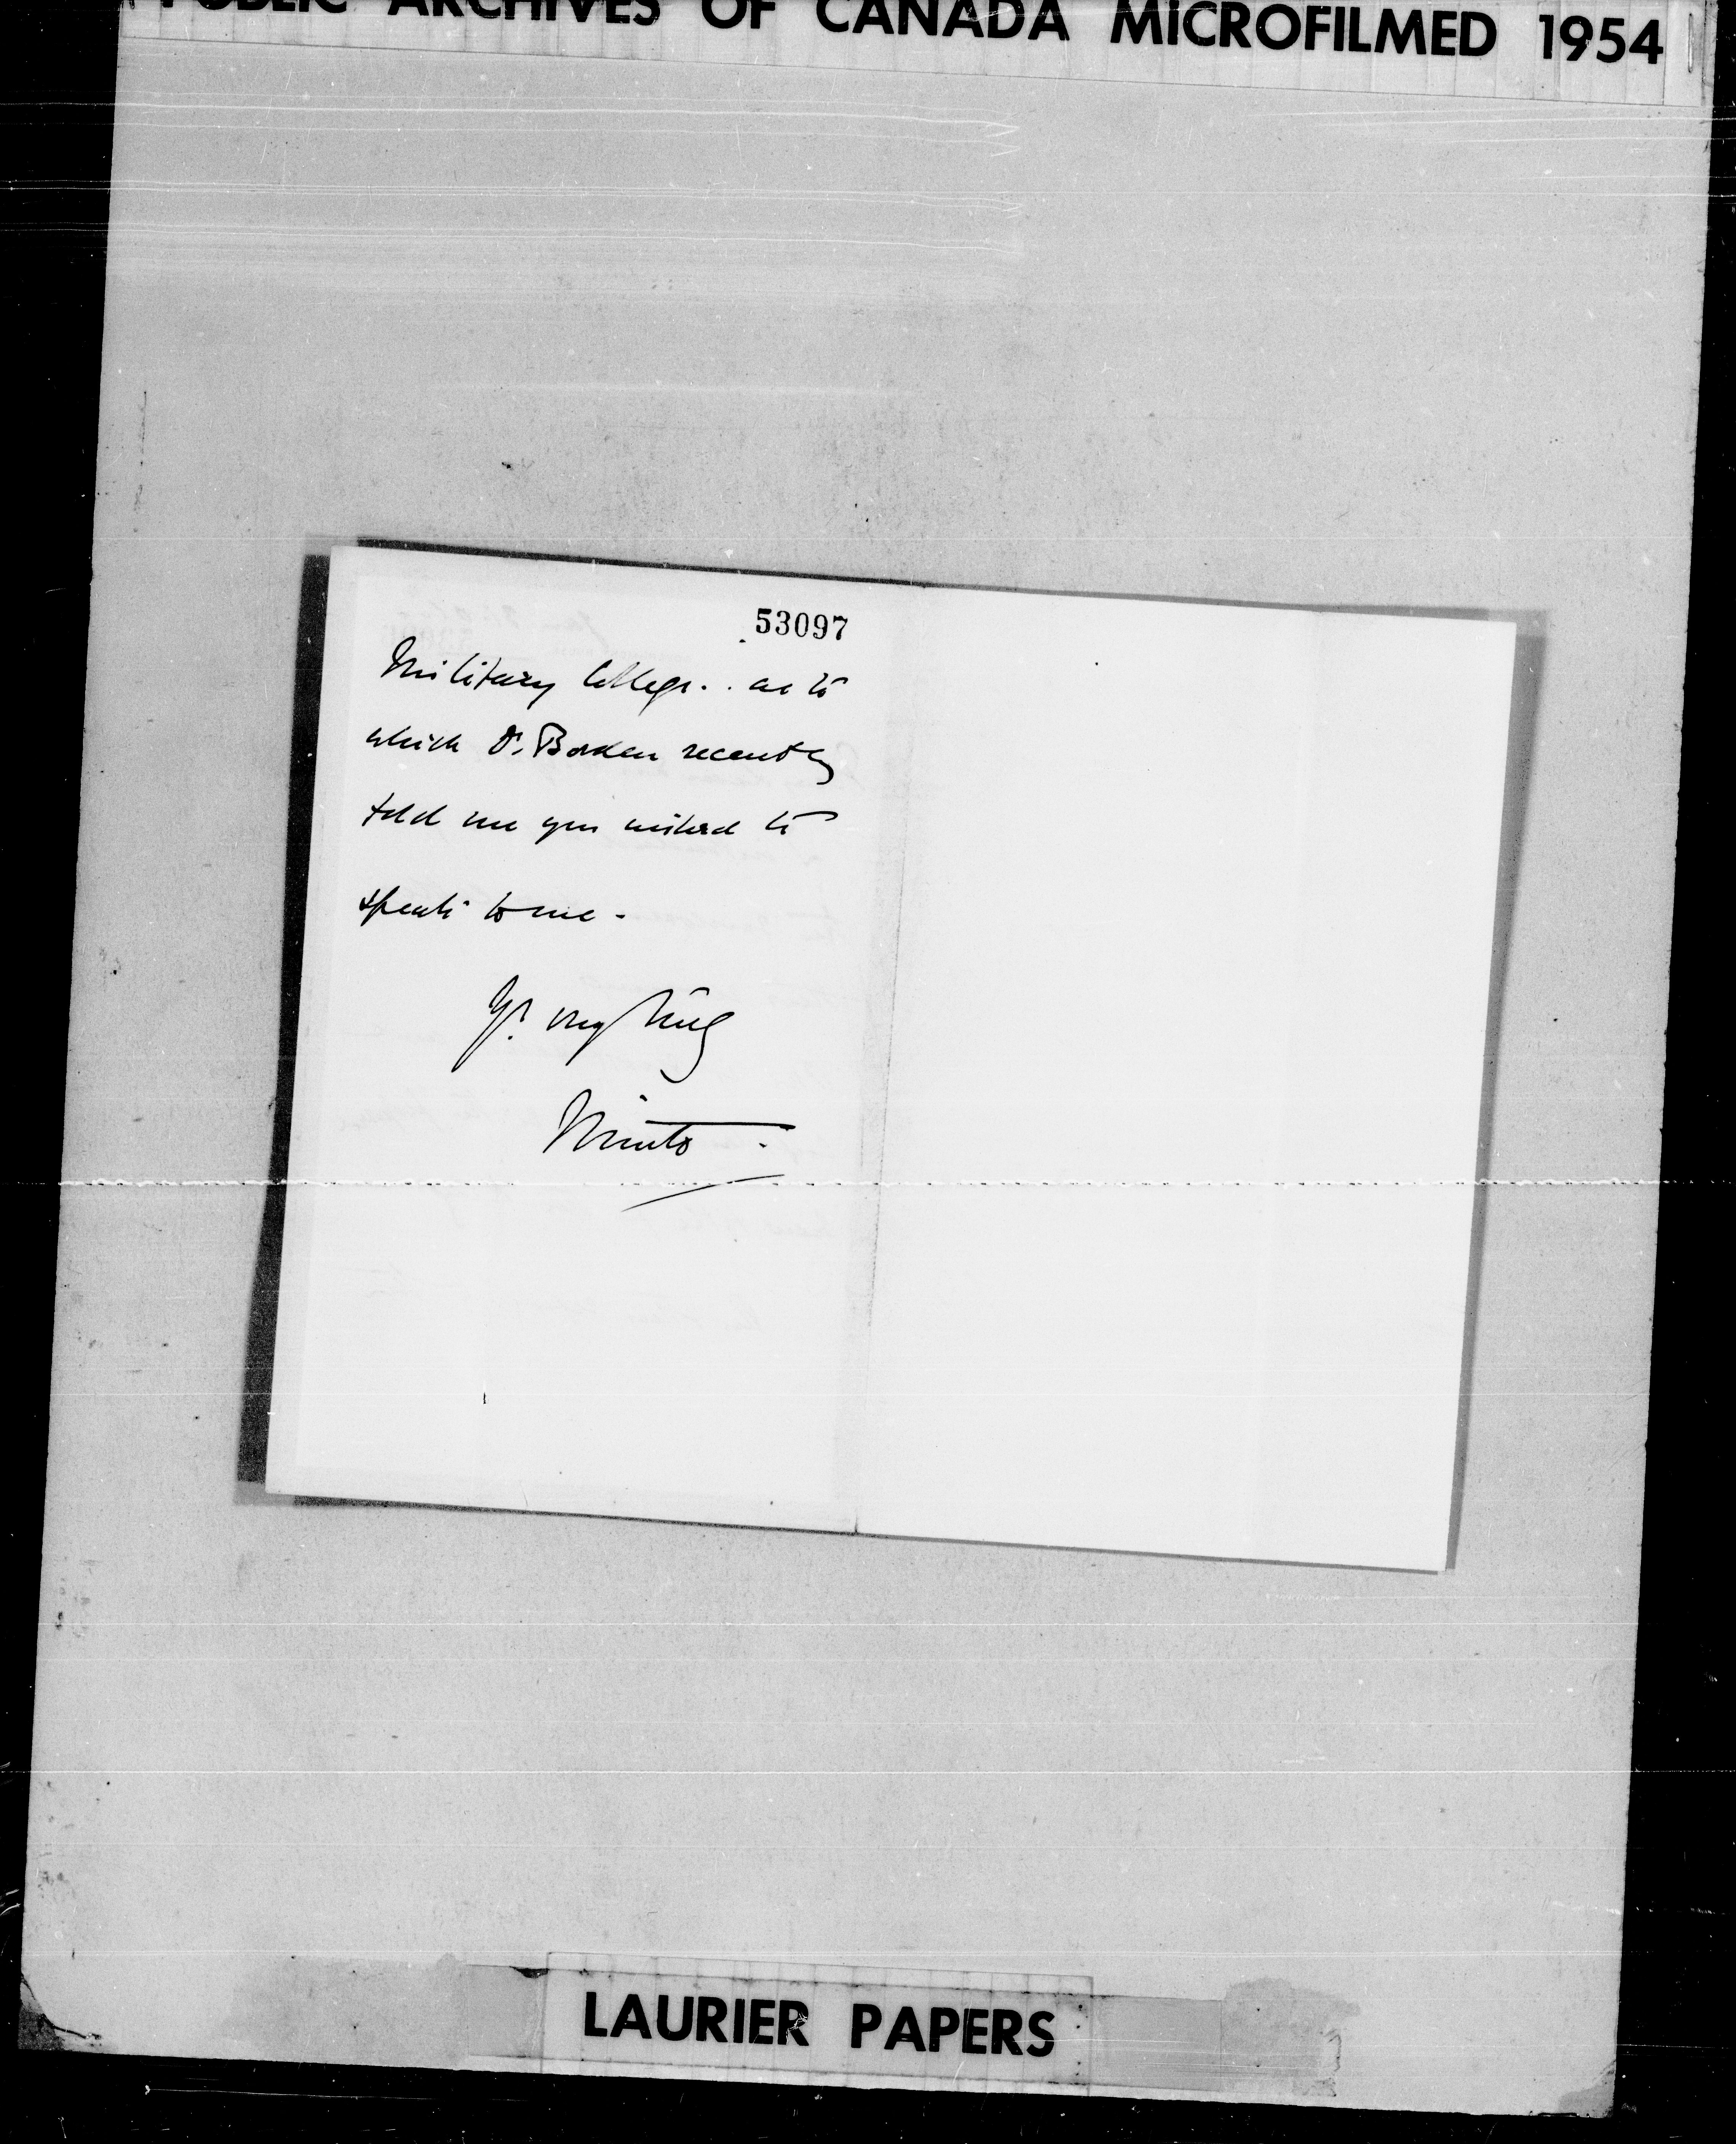 PUBLIC ARCHIVES OF CANADA MICROFILMED 1954
53097
Military College.. as to
which Dr. Borden recently
told me you wished to
speak to me -
Yrs. very truly
Minto.
LAURIER PAPERS